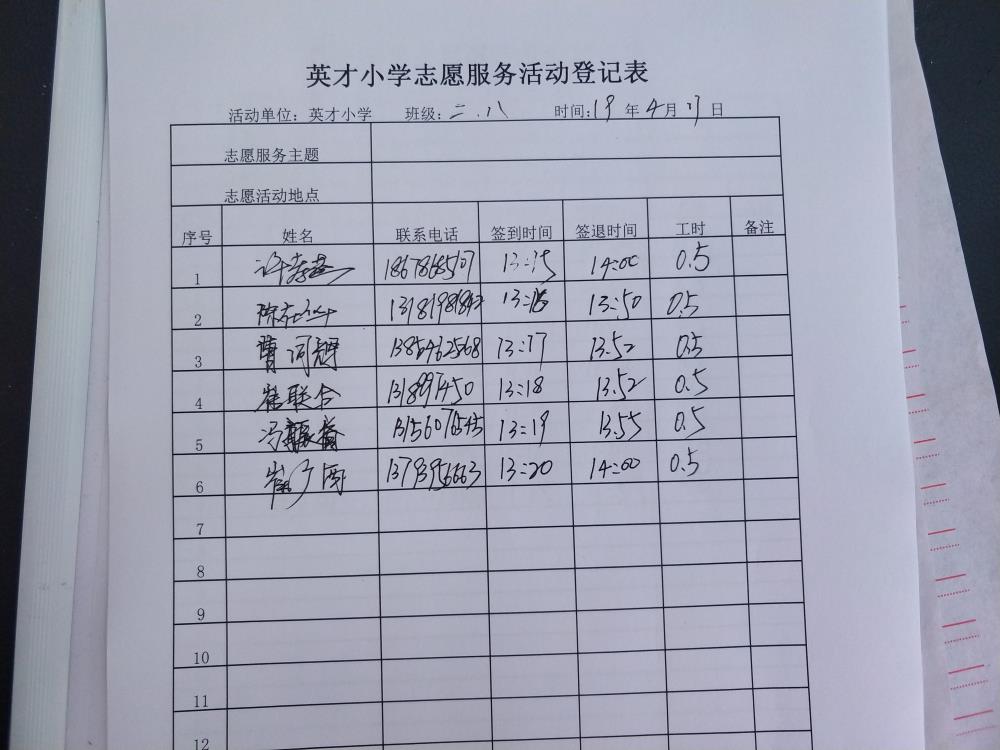 英才小学志愿服务活动登记表
活动单位：英才小学 班级：二.八 时间：19年4月17日
志愿服务主题
志愿活动地点
序号 姓名 联系电话 签到时间 签退时间 工时 备注
1 13:15 14:00 0.5
2 13:16 13:50 0.5
3 曹 1385462568 13:17 13:52 0.5
4 崔联合 13:18 13:52 0.5
5 冯 13156076545 13:19 13:55 0.5
6 崔广 13:20 14:00 0.5
7
8
9
10
11
12